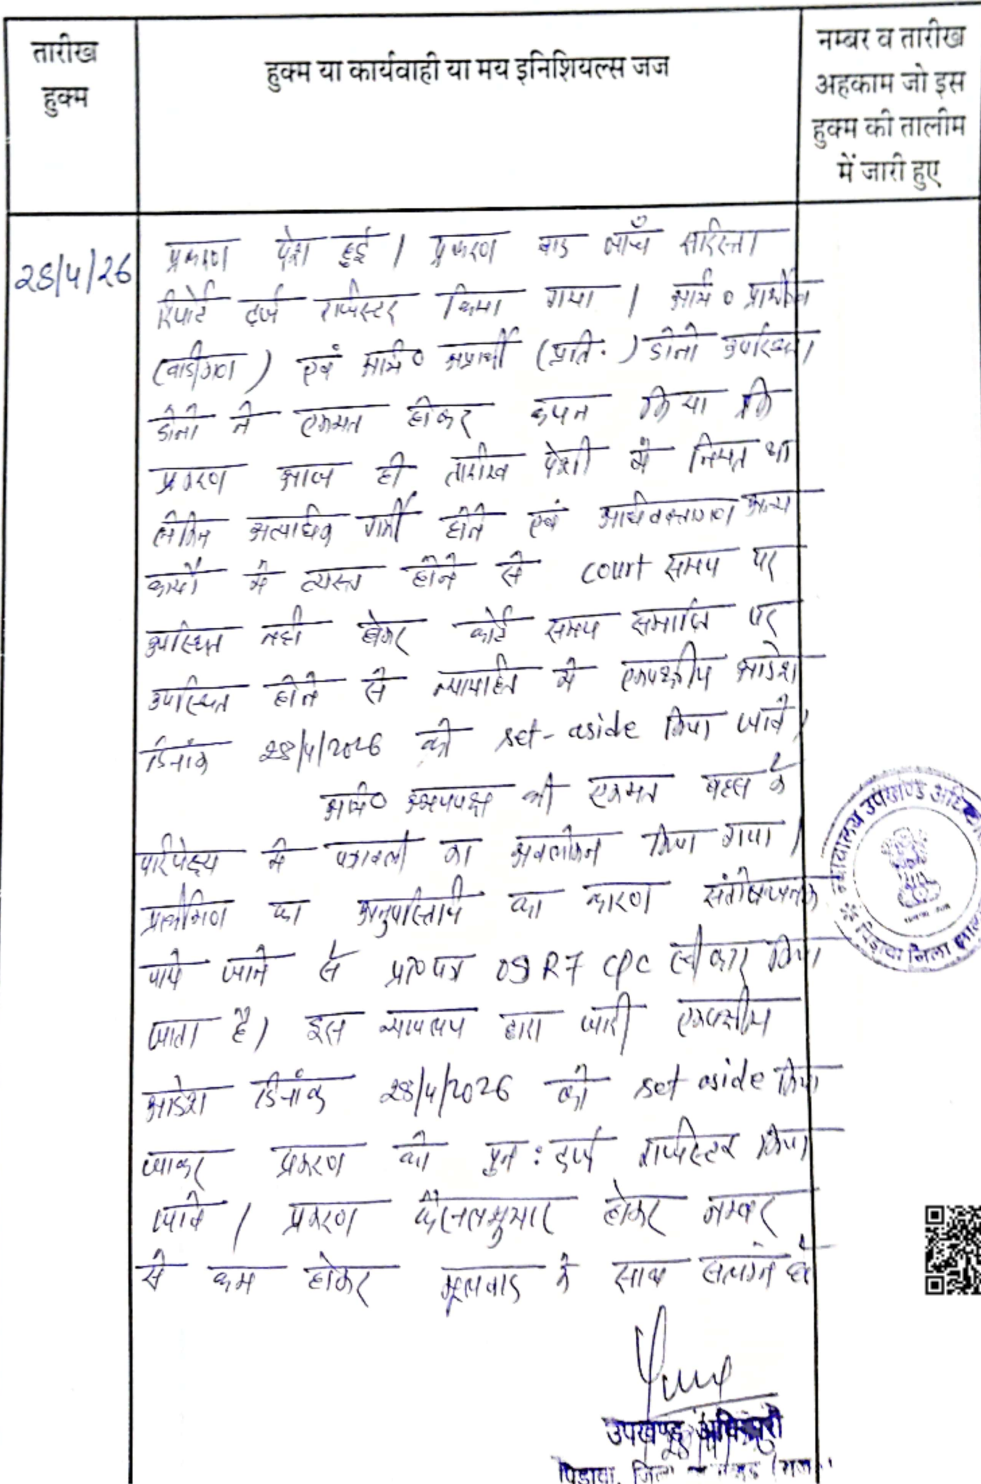 तारीख
हुक्म
हुक्म या कार्यवाही या मय इनिशियल्स जज
नम्बर व तारीख
अहकाम जो इस
हुक्म की तालीम
में जारी हुए
28/4/26
प्रकरण पेश हुई । प्रकरण बाद जाँच सरिस्ता
रिपोर्ट दर्ज राजिस्टर किया गया । अभि० प्रार्थीगण
(वादीगण) एवं अभि० अप्रार्थी (प्रति.) दोनो उपस्थित।
दोनो ने एकमत होकर कथन किया कि
प्रकरण आज ही तारीख पेशी मे नियत था
लेकिन अत्याधिक गर्मी होने एवं अधिवक्तागण अन्य
कार्यो मे व्यस्त होने से court समय पर
उपस्थित नही होकर कोर्ट समय समाप्ति पर
उपस्थित होने से न्यायहित मे एकपक्षीय आदेश
दिनांक 28/4/2026 को set-aside किया जावे।
अभि० उभयपक्ष की एकमत बहस के
परिपेक्ष्य मे पत्रावली का अवलोकन किया गया।
प्रार्थीगण का अनुपस्तिथि का कारण संतोषजनक
पाये जाने से प्रा०पत्र O9 R7 CPC स्वीकार किया
जाता है। इस न्यायालय द्वारा जारी एकपक्षीय
आदेश दिनांक 28/4/2026 को set aside किया
जाकर प्रकरण को पुन: दर्ज राजिस्टर किया
जावे । प्रकरण फैसलशुमार होकर नम्बर
से कम होकर मूलवाद के साथ सलंग्न हो
न्यायालय उपखण्ड अधिकारी
पिड़ावा जिला
उपखण्ड अधिकारी
पिड़ावा, जिला (राज.)